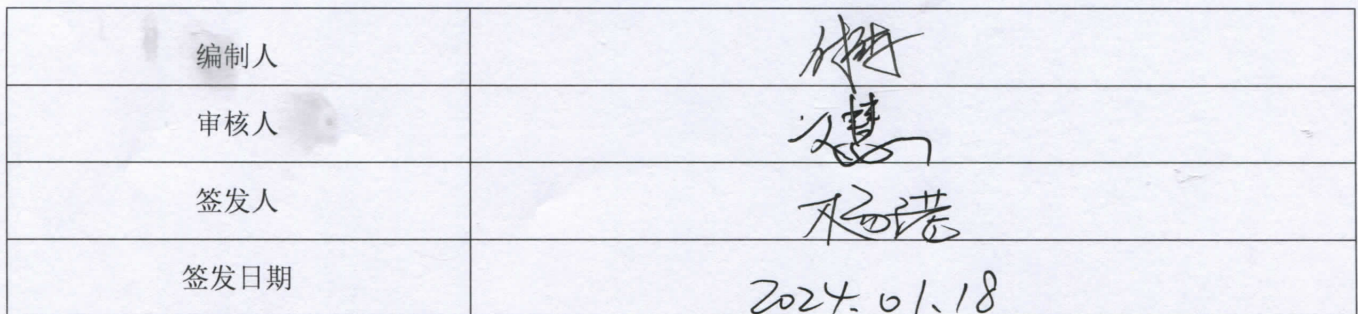 编制人
审核人 文慧
签发人 杨港
签发日期 2024.01.18